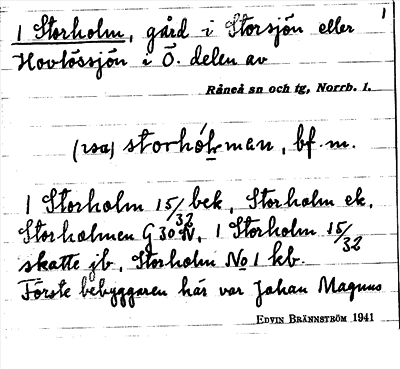 1
1 Storholm, gård i Storsjön eller
Hovlössjön i Ö. delen av
Råneå sn och tg, Norrb. l.
(usa) storhólmen, bf. m.
1 Storholm 15/32 bek, Storholm ek,
Storholmen G 30 N, 1 Storholm 15/32
skatte jb, Storholm No 1 kb.
Förste bebyggaren här var Johan Magnus
EDVIN BRÄNNSTRÖM 1941